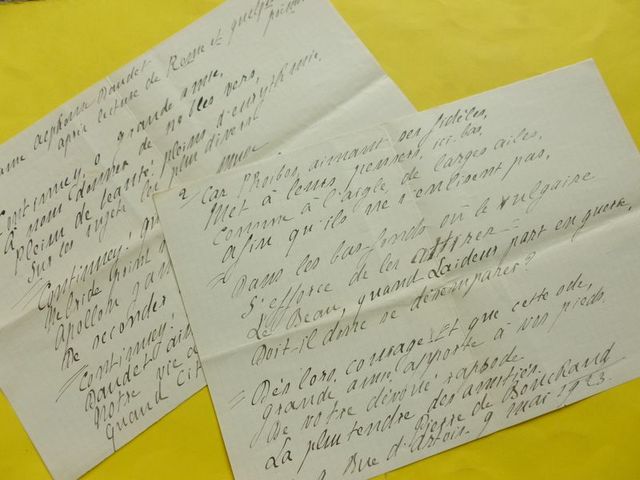 Alphonse Daudet
après lecture de Rome et quelques
Continuez, o grande amie,
A nous donner de nobles vers,
Pleins de beauté, pleins d'eurythmie
Sur les sujets les plus divers
Continuez,
Apollon
De seconder
Continuez,
Daudet
Notre vie
Quand
Car Phoibos, aimant ses fidèles,
Met à leurs pensers, ici-bas,
Comme à l'aigle de larges ailes,
Afin qu'ils ne s'enlisent pas,
Dans les bas-fonds où le vulgaire
S'efforce de les attirer =
Le Beau, quand Laideur part en guerre,
Doit-il donc se désemparer?
Dès lors, courage! Et que cette ode,
Grande amie, apporte à vos pieds
De votre dévoué rapsode
La plus tendre des amitiés.
Pierre de Bouchaud
Rue d'Artois. 9 mai 1923.